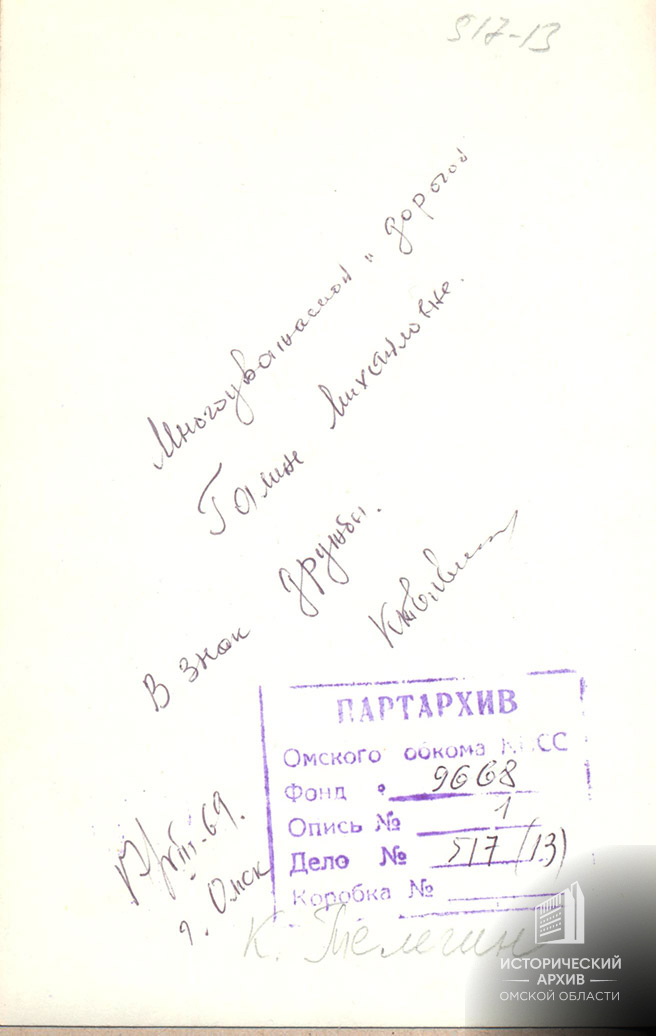 517-13
Многоуважаемой и дорогой
Галине Михайловне.
В знак дружбы.
КТелегин
ПАРТАРХИВ
Омского обкома КПСС
Фонд 9668
Опись № 1
Дело № 517 (13)
Коробка №
VIII-69.
г. Омск
К. Телегин
ИСТОРИЧЕСКИЙ
АРХИВ
ОМСКОЙ ОБЛАСТИ